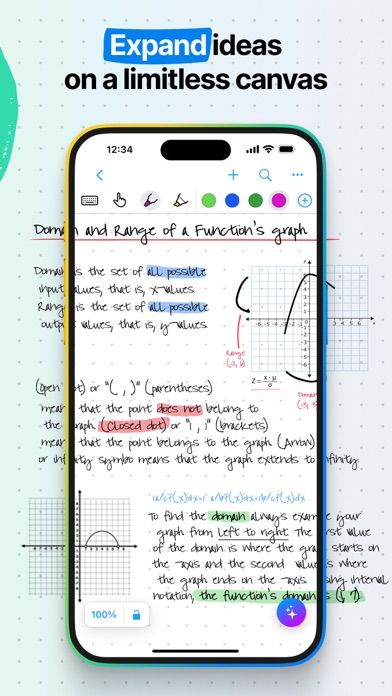 Expand ideas
on a limitless canvas
12:34
Domain and Range of a Function's graph
Domain is the set of all possible
input values, that is, x-values
Range is the set of all possible
output values, that is, y-values
Range
Z = x-μ
σ
Domain
(open dot) or "( , )" (parentheses)
mean that the point does not belong to
the graph. (closed dot) or (brackets)
mean that the point belongs to the graph (Arrow)
or infinity symbo means that the graph extends to infinity
To find the domain always examine your
graph from Left to right The first value
of the domain is where the graph starts on
the axis and the second value is where
the graph ends on the axis using interval
notation, the function's domain is
100%